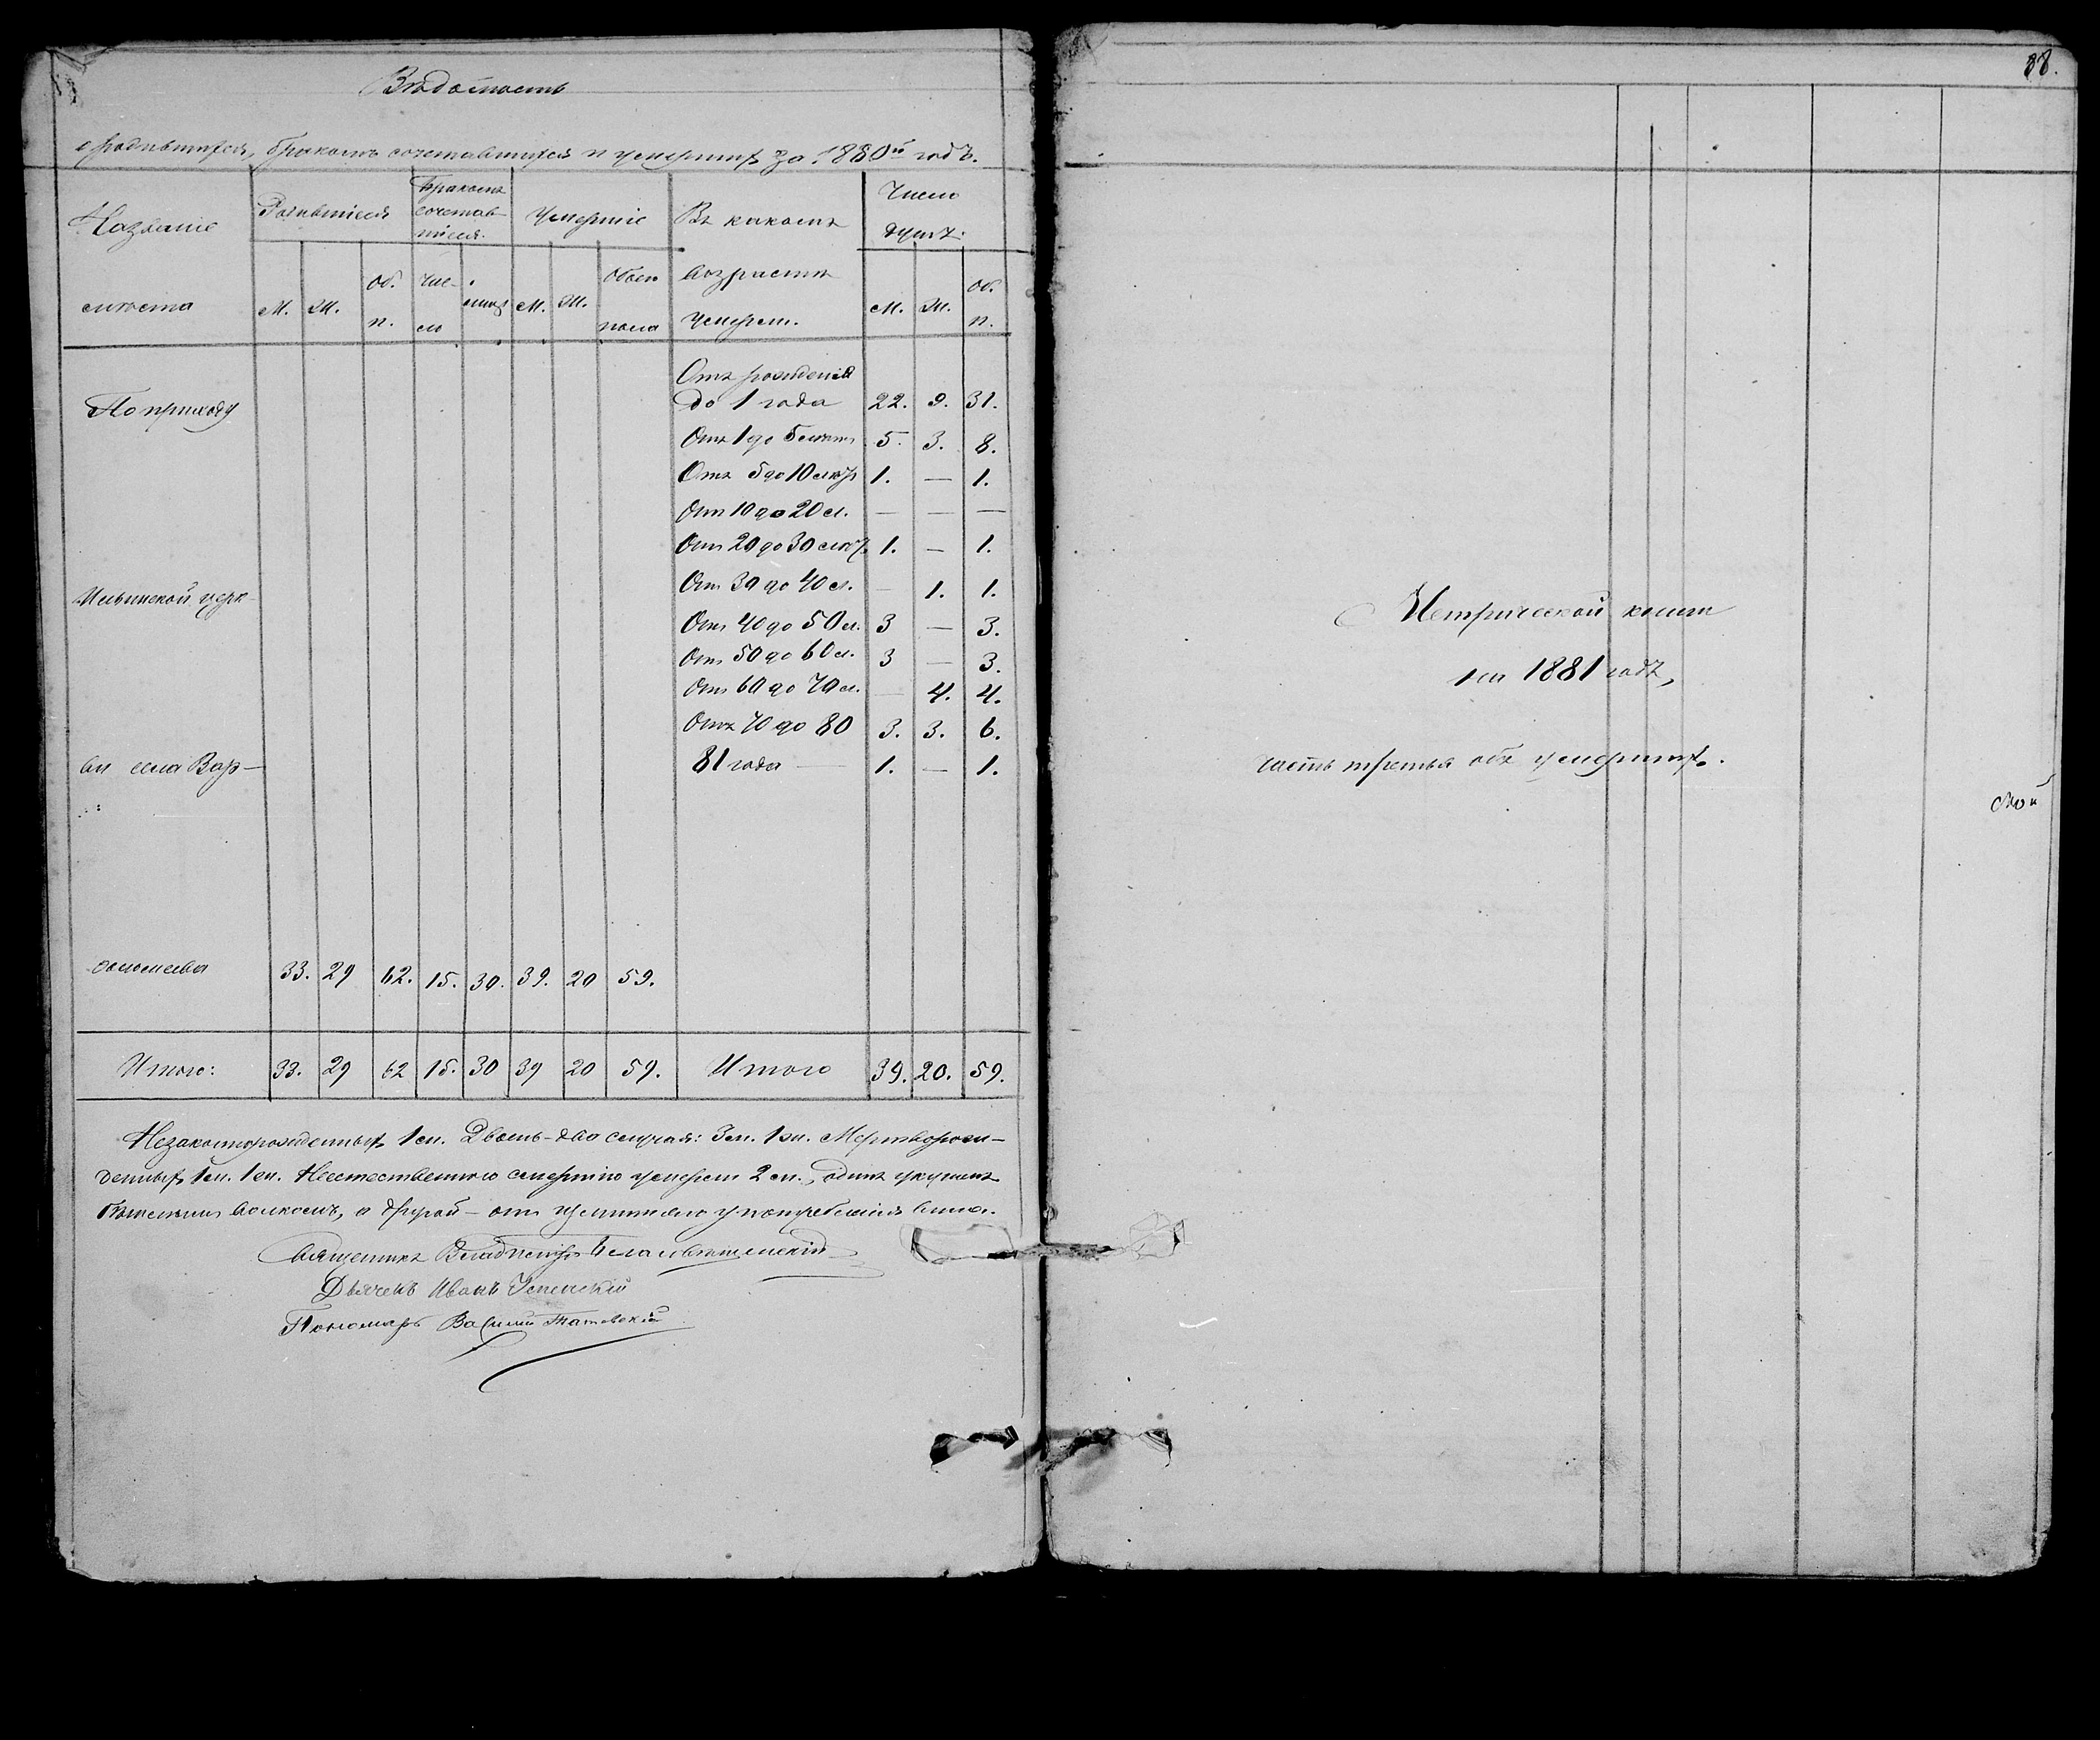 Вѣдомость
о родившихся, бракомъ сочетавшихся и умершихъ за 1880й годъ.
Названіе мѣста | Родившіеся | Бракомъ сочетавшіеся | Умершіе | Въ какомъ возрастѣ умерли. | Число душъ.
М. | Ж. | Об. п. | Число | лицъ | М. | Ж. | Обоего пола | М. | Ж. | Об. п.
По приходу
Отъ рожденія
до 1 года 22. 9. 31.
Отъ 1 до 5 лѣтъ 5. 3. 8.
Отъ 5 до 10 лѣтъ 1. — 1.
Отъ 10 до 20 л. — — —
Отъ 20 до 30 лѣтъ 1. — 1.
Ильинской церк-
Отъ 30 до 40 л. — 1. 1.
Отъ 40 до 50 л. 3 — 3.
Отъ 50 до 60 л. 3 — 3.
Отъ 60 до 70 л. — 4. 4.
Отъ 70 до 80 3. 3. 6.
ви села Вар-
81 года — 1. — 1.
ооломеева 33. 29 62. 15. 30. 39. 20 59.
Итого: 33. 29 62 15. 30 39 20 59. Итого 39. 20. 59.
Незаконнорожденныхъ 1 м. Двоень - два случая: 3 м. 1 ж. Мертворож-
денныхъ 1 м. 1 ж. Неестественною смертію умерли 2 м., одинъ укушенъ
бѣшенымъ волкомъ, а другой - отъ излишняго употребленія вина.
Священникъ Владиміръ
Дьячекъ Иванъ Успенскій
Пономарь Василій
88.
Метрической книги
на 1881 годъ,
часть третья объ умершихъ.